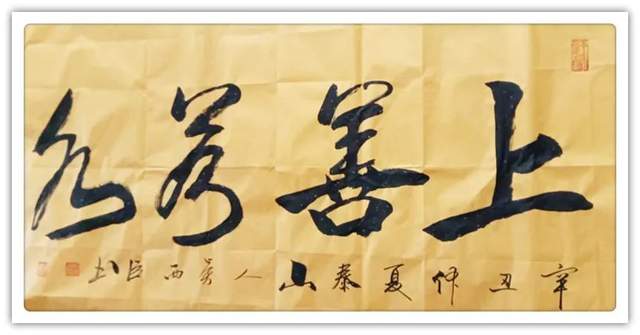 上善若水
辛丑仲夏泰山人吴西臣书